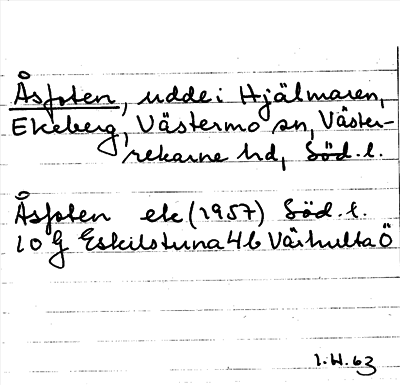 Åsfoten, udde i Hjälmaren,
Ekeberg, Västermo sn, Väster-
rekarne hd, Söd. l.
Åsfoten ek (1957) Söd. l.
10 G Eskilstuna 4b Värhulta Ö
I.H. 63